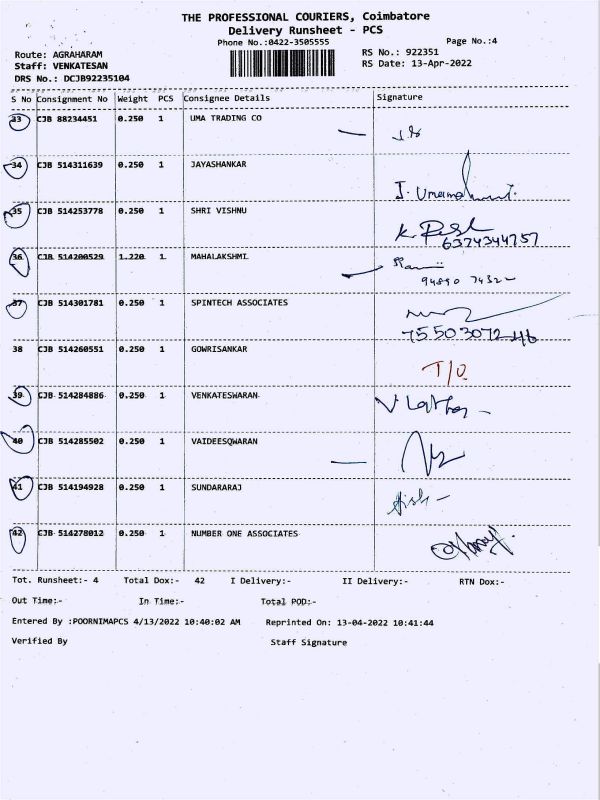 THE PROFESSIONAL COURIERS, Coimbatore
Delivery Runsheet - PCS
Phone No.:0422-3505555 Page No.:4
Route: AGRAHARAM RS No.: 922351
Staff: VENKATESAN RS Date: 13-Apr-2022
DRS No.: DCJB92235104
S No Consignment No Weight PCS Consignee Details Signature
33 CJB 88234451 0.250 1 UMA TRADING CO
34 CJB 514311639 0.250 1 JAYASHANKAR
35 CJB 514253778 0.250 1 SHRI VISHNU
6374344757
36 CJB 514200529 1.220 1 MAHALAKSHMI
94890 74322
37 CJB 514301781 0.250 1 SPINTECH ASSOCIATES
7550307246
38 CJB 514260551 0.250 1 GOWRISANKAR
T/O
39 CJB 514284886 0.250 1 VENKATESWARAN
40 CJB 514285502 0.250 1 VAIDEESQWARAN
41 CJB 514194928 0.250 1 SUNDARARAJ
42 CJB 514278012 0.250 1 NUMBER ONE ASSOCIATES
Tot. Runsheet:- 4 Total Dox:- 42 I Delivery:- II Delivery:- RTN Dox:-
Out Time:- In Time:- Total POD:-
Entered By :POORNIMAPCS 4/13/2022 10:40:02 AM Reprinted On: 13-04-2022 10:41:44
Verified By Staff Signature